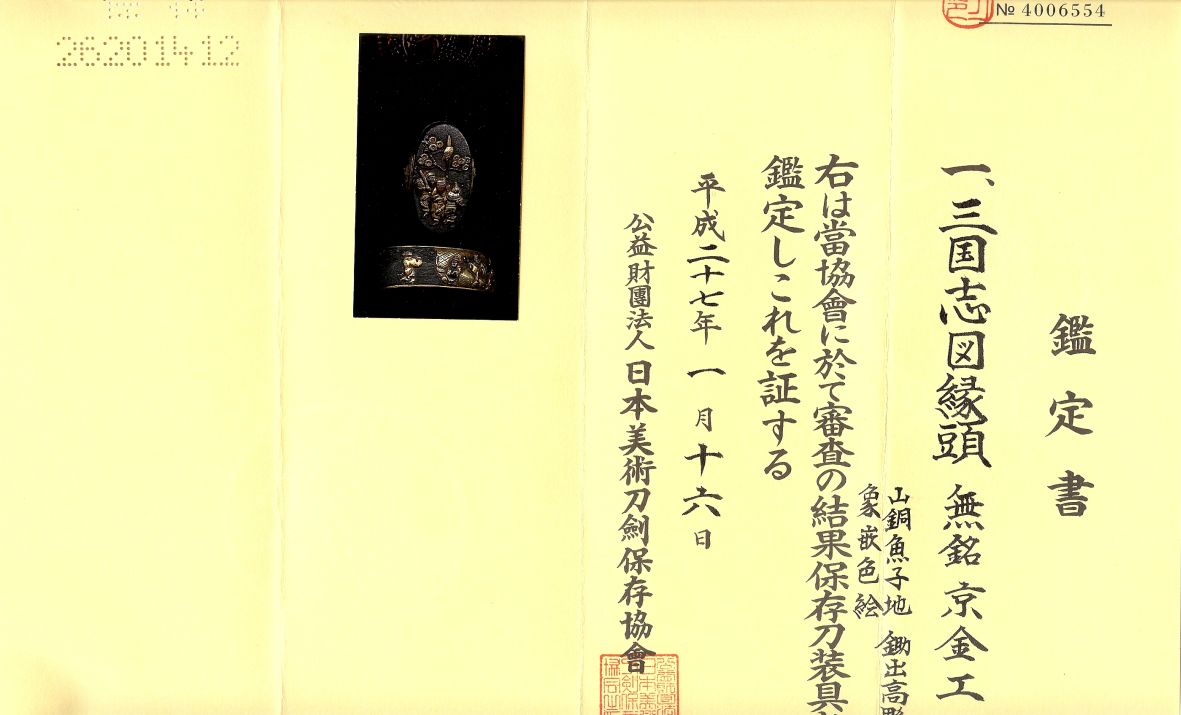 № 4006554
鑑定書
一、三国志図縁頭 無銘 京金工
山銅魚子地 鋤出高彫
象嵌色絵
右は當協會に於て審査の結果保存刀装具と
鑑定しこれを証する
平成二十七年一月十六日
公益財團法人 日本美術刀劍保存協會
26201412